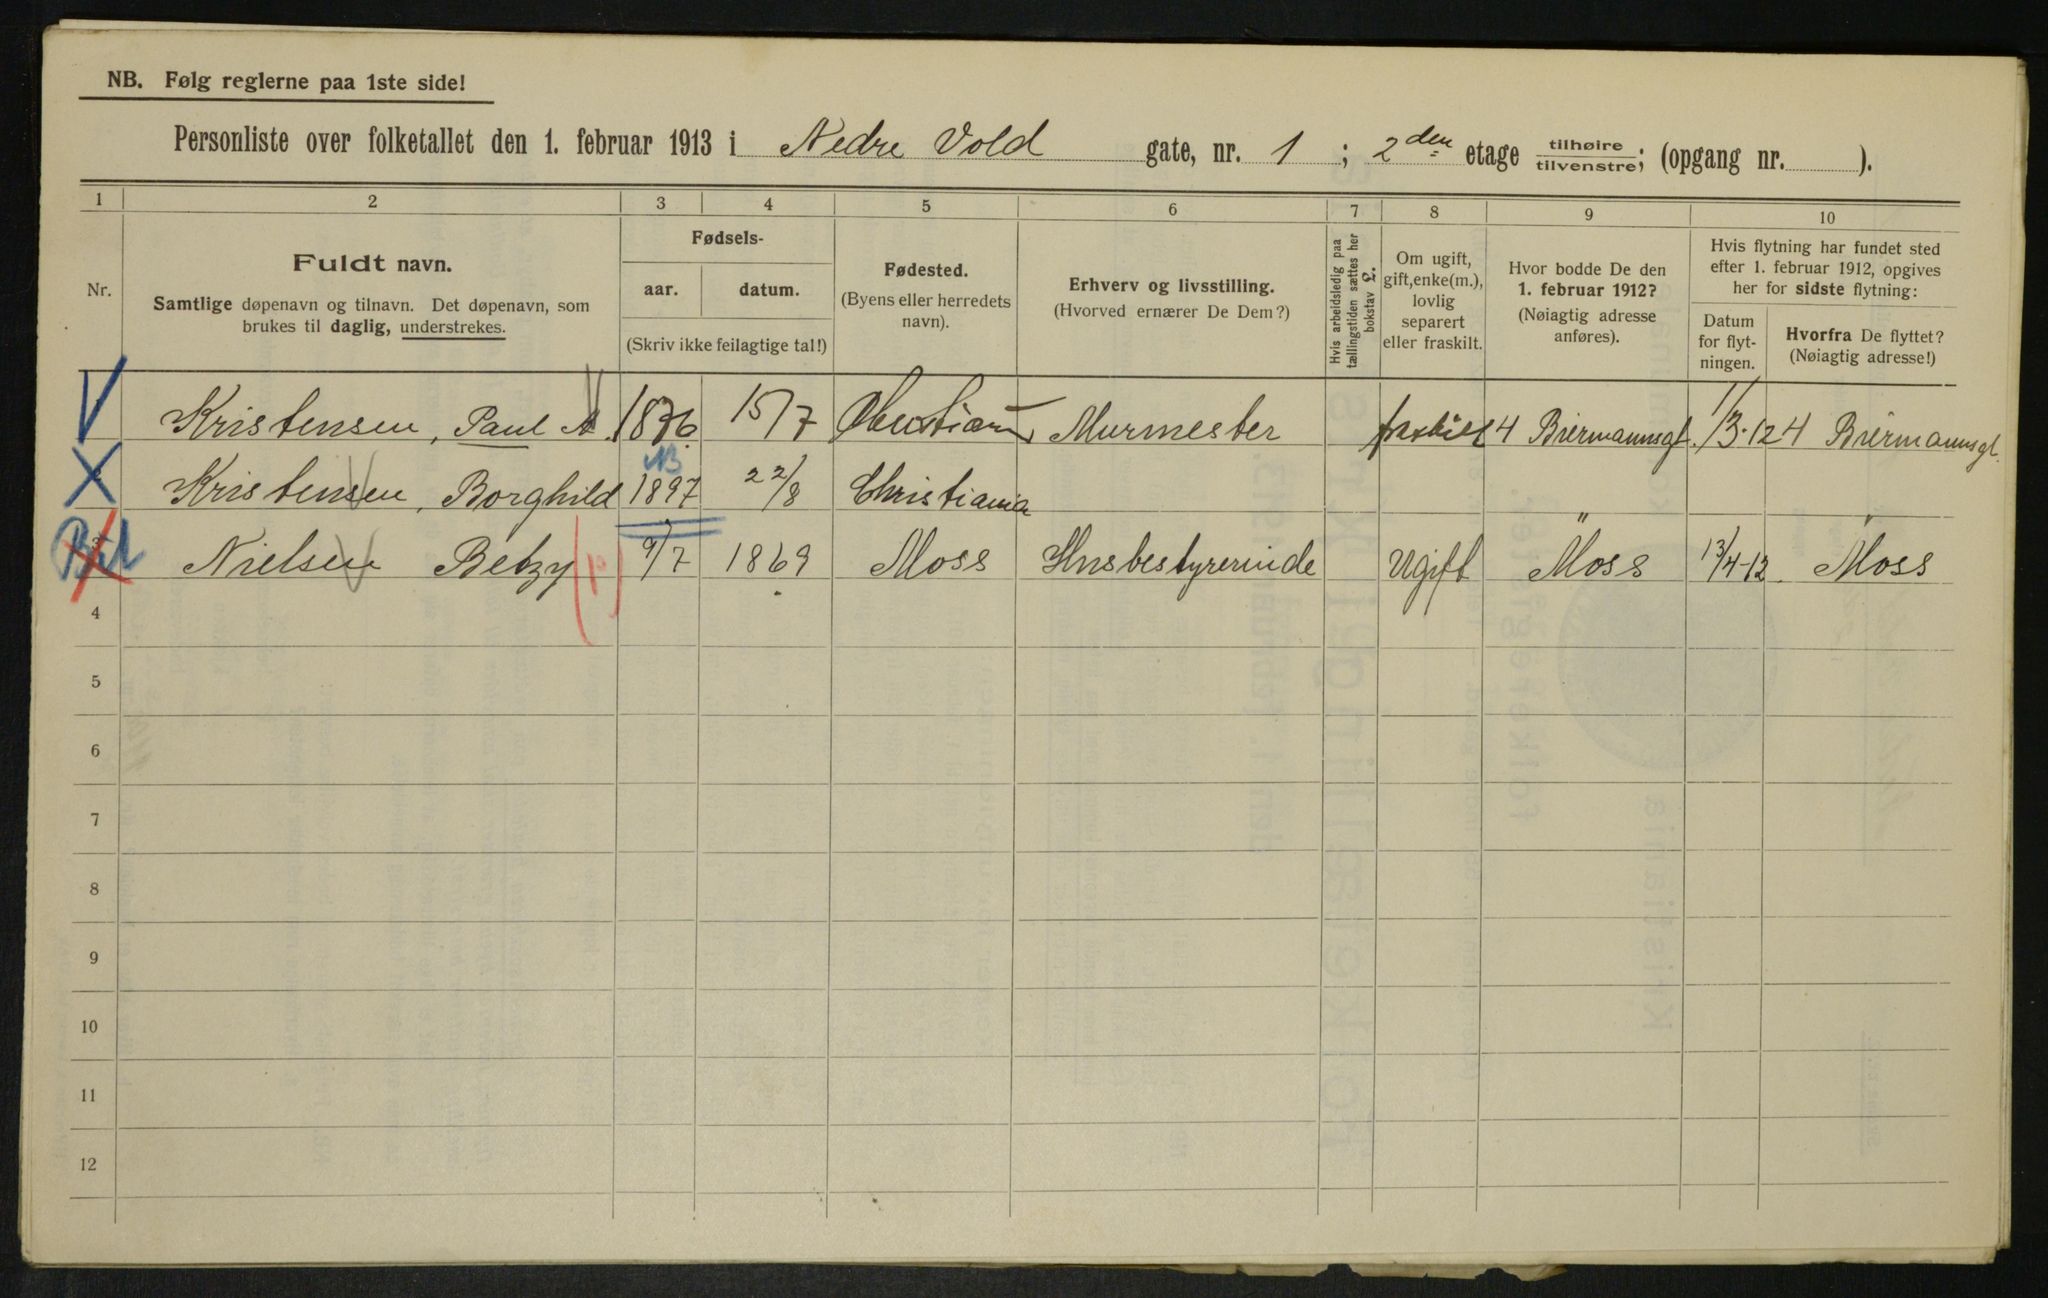 NB. Følg reglerne paa 1ste side!
Personliste over folketallet den 1. februar 1913 i Nedre Vold gate, nr. 1 ; 2den etage tilhøire/tilvenstre; (opgang nr. ).
1 2 3 4 5 6 7 8 9 10
Nr.
Fuldt navn.
Samtlige døpenavn og tilnavn. Det døpenavn, som
brukes til daglig, understrekes.
Fødsels-
aar. datum.
(Skriv ikke feilagtige tal!)
Fødested.
(Byens eller herredets
navn).
Erhverv og livsstilling.
(Hvorved ernærer De Dem?)
Hvis arbeidsledig paa
tællingstiden sættes her
bokstav L.
Om ugift,
gift, enke(m.),
lovlig
separert
eller fraskilt.
Hvor bodde De den
1. februar 1912?
(Nøiagtig adresse
anføres).
Hvis flytning har fundet sted
efter 1. februar 1912, opgives
her for sidste flytning:
Datum
for flyt-
ningen.
Hvorfra De flyttet?
(Nøiagtig adresse!)
Kristensen, Paul A. 1876 15/7 Murmester fraskilt 4 Biermannsgt. 1/3-12 4 Biermannsgt.
NB
Kristensen, Borghild 1897 22/8 Christiania
3 Nielsen Betzy 9/7 1869 Moss Husbestyrerinde Ugift Moss 13/4-12 Moss
4
5
6
7
8
9
10
11
12